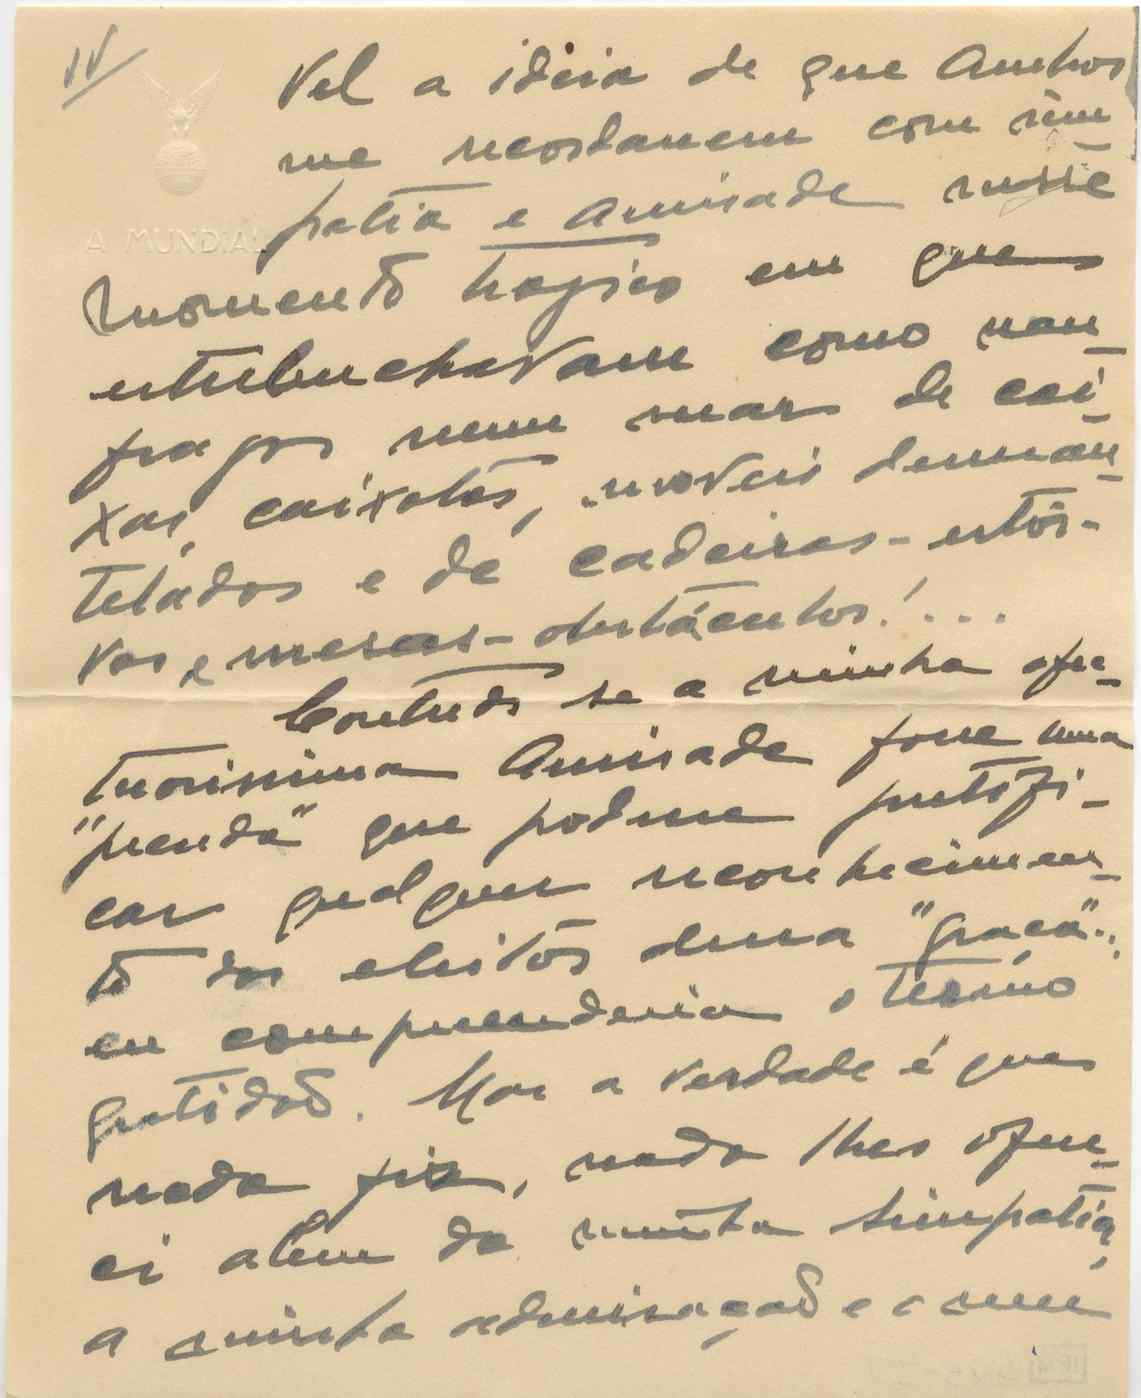 IV
A MUNDIAL
vel a ideia de que Ambos
me recordarem com sim-
patia e amisade nesse
momento tragico em que
estrebuchavam como nau-
fragos, num mar de cai-
xas, caixotes, moveis desman-
telados e de cadeiras-estor-
vos, e mesas-obstáculos!...
Contudo se a minha afec-
tuosissima Amisade fosse uma
"prenda" que podesse justifi-
car qualquer reconhecimen-
to dos eleitos duma "graça"..
eu compreenderia o termo
gratidão. Mas a verdade é que
nada fiz, nada lhes ofere-
ci alem da minha simpatia,
a minha admiração e o meu